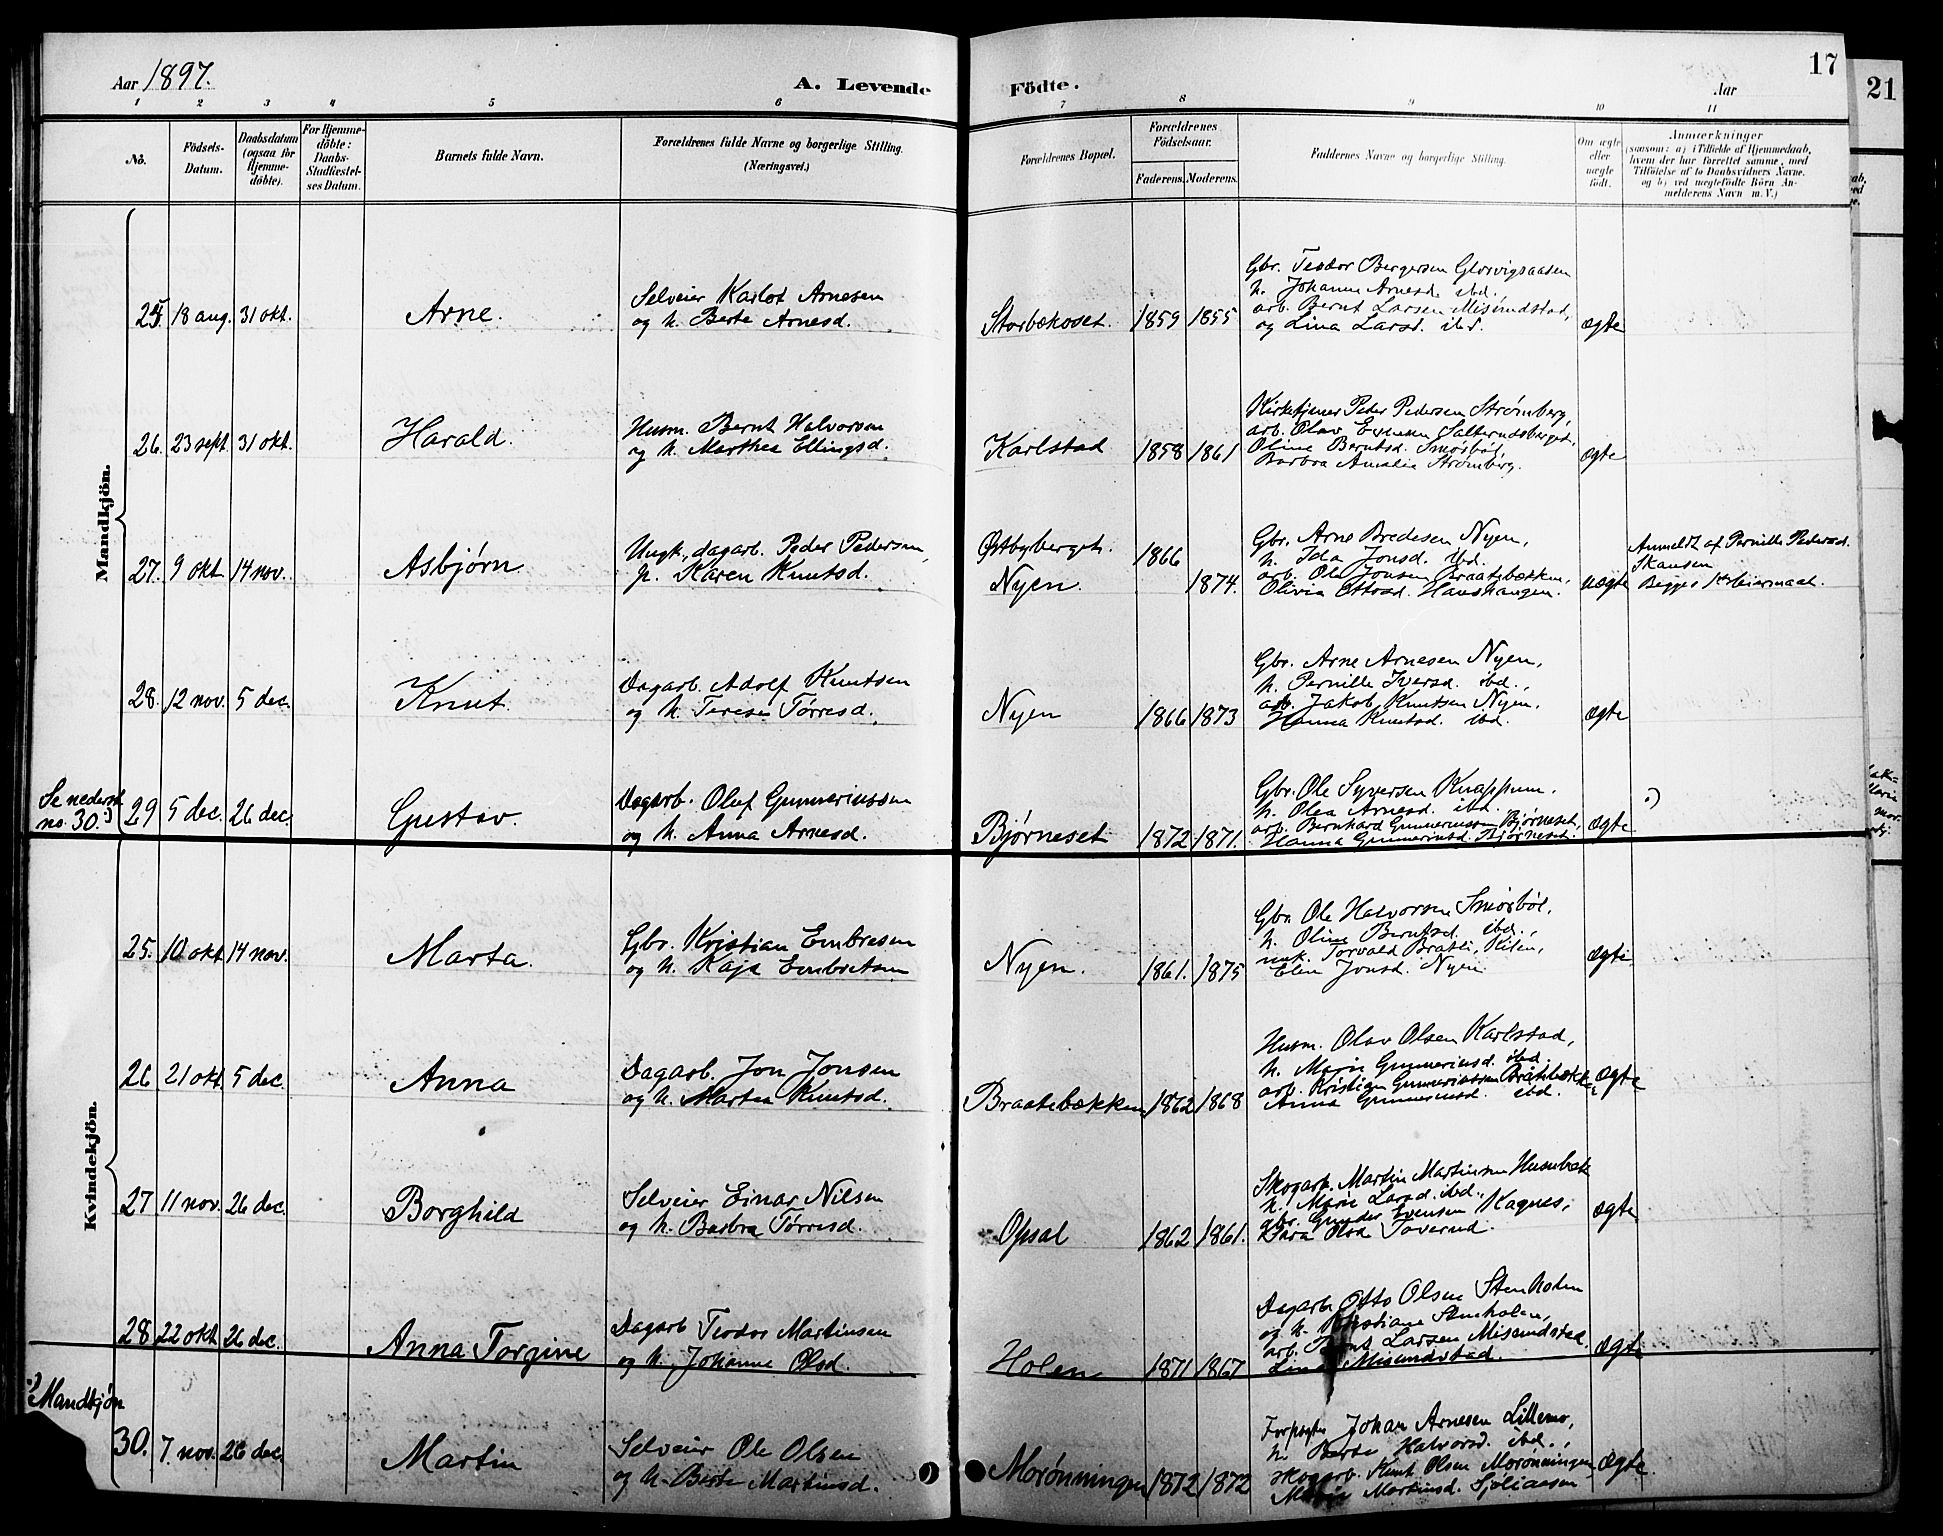 Aar 1897.
A. Levende Fødte.
17
Aar
21
1 2 3 4 5 6 7 8 9 10 11
No.
Födsels-
Datum.
Daabsdatum
(ogsaa for
Hjemme-
döbte).
For Hjemme-
döbte:
Daabs-
Stadfæstel-
ses Datum.
Barnets fulde Navn.
Forældrenes fulde Navne og borgerlige Stilling.
(Næringsvei.)
Forældrenes Bopæl.
Forældrenes
Födselsaar.
Faderens. Moderens.
Faddernes Navne og borgerlige Stilling.
Om ægte
eller
uægte
født.
Anmærkninger
(saasom: a) i Tilfælde af Hjemmedaab,
hvem der har forrettet samme, med
Tilföielse af to Daabsvidners Navne,
og b) ved uægtefödte Börn An-
melderens Navn m. V.)
Mandkjön.
25 18 aug. 31 okt.
Arne.
Selveier Karlot Arnesen
og h. Berte Arnesd.
Storbekoset. 1859 1855
Gbr. Teodor Bergersen
h. Johanne Arnesd. ibd.
arb. Bernt Larsen Misundstad,
og Lina Larsd. ibd.
ægte
26. 23 sept. 31 okt.
Harald.
Husm. Bernt Halvorsen
og h. Marthea Ellingsd.
Karlstad 1858 1861
Kirketjener Peder Pedersen Strømberg,
arb. Olav
Oline Berntsd. Smøsbøl,
Barbra Amalia Strømberg.
ægte
27. 9 okt. 14 nov.
Asbjørn.
Ungk., dagarb. Peder Pedersen,
p. Karen Knutsd.
Østbyberget. 1866
Nyen. 1874.
Gbr. Arne Bredesen Nyen,
h. Ida Jonsd. ibd.
arb. Ole Jonsen Braatebækken,
Olivia Ottosd.
uægte
Anmeldt af Pernille Pedersd.
Skansen
Begges 1ste leiermaal.
28. 12 nov. 5 dec.
Knut.
Dagarb. Adolf Knutsen
og h. Terese Tørresd.
Nyen 1866 1873
Gbr. Arne Arnesen Nyen,
h. Pernille Iversd. ibd.,
arb. Jakob Knutsen Nyen,
Hanna Knutsd. ibd.
ægte
Se nederst
no. 30.
29 5 dec. 26 dec.
Gustav.
Dagarb. Oluf Gunneriussen
og h. Anna Arnesd.
Bjørneset 1872 1871.
Gbr. Ole Syversen Knappum.
h. Olea Arnesd. ibd.
arb. Bernhard Gunneriussen Bjørneset,
Hanna Gunneriusd. Bjørneset.
ægte
Kvindekjön.
25. 10 okt 14 nov.
Marta.
Gbr. Kristian Embresen
og h. Kaja Embretsen
Nyen. 1861. 1875
Gbr. Ole Halvorsen Smøsbøl,
h. Oline Berntsd. ibd.,
unk. Torvald Bratli, Kilen,
Elen Jonsd. Nyen
ægte.
26 21 okt. 5 dec.
Anna
Dagarb. Jon Jonsen
og h. Martea Knutsd.
Braatebækken 1862 1868
Husm. Olav Olsen Karlstad,
h. Marie Gunneriusd. ibd.
arb. Kristian Gunneriussen Bråtebække
Anna Gunneriusd. ibd.
ægte
27 11 nov. 26 dec.
Borghild
Selveier Einar Nilsen
og h. Barbra Tørresd.
Opsal 1862 1861.
Skogarb. Martin Martinsen Husubæk
h. Marie Larsd. ibd.,
gbr. Gunder Evensen Kagnes,
Klara Olsd Toverud.
ægte
28 22 okt 26 dec.
Anna Torgine
Dagarb Teodor Martinsen
og h. Johanne Olsd.
Holen 1871 1867
Dagarb. Otto Olsen Stenholen
og h. Kristiane Stenholen,
arb. Bernt Larsen Misundstad.
Lina Misundstad.
ægte
Mandkjøn
30. 7 nov. 26 dec
Martin
Selveier Ole Olsen
og h. Berte Martinsd.
Morønningen 1872 1872
Forpagter Johan Arnesen Lillemo,
h. Berte Halvorsd. ibd.,
skogarb. Knut Olsen Morønningen,
Marie Martinsd. Sjøliaasen
ægte